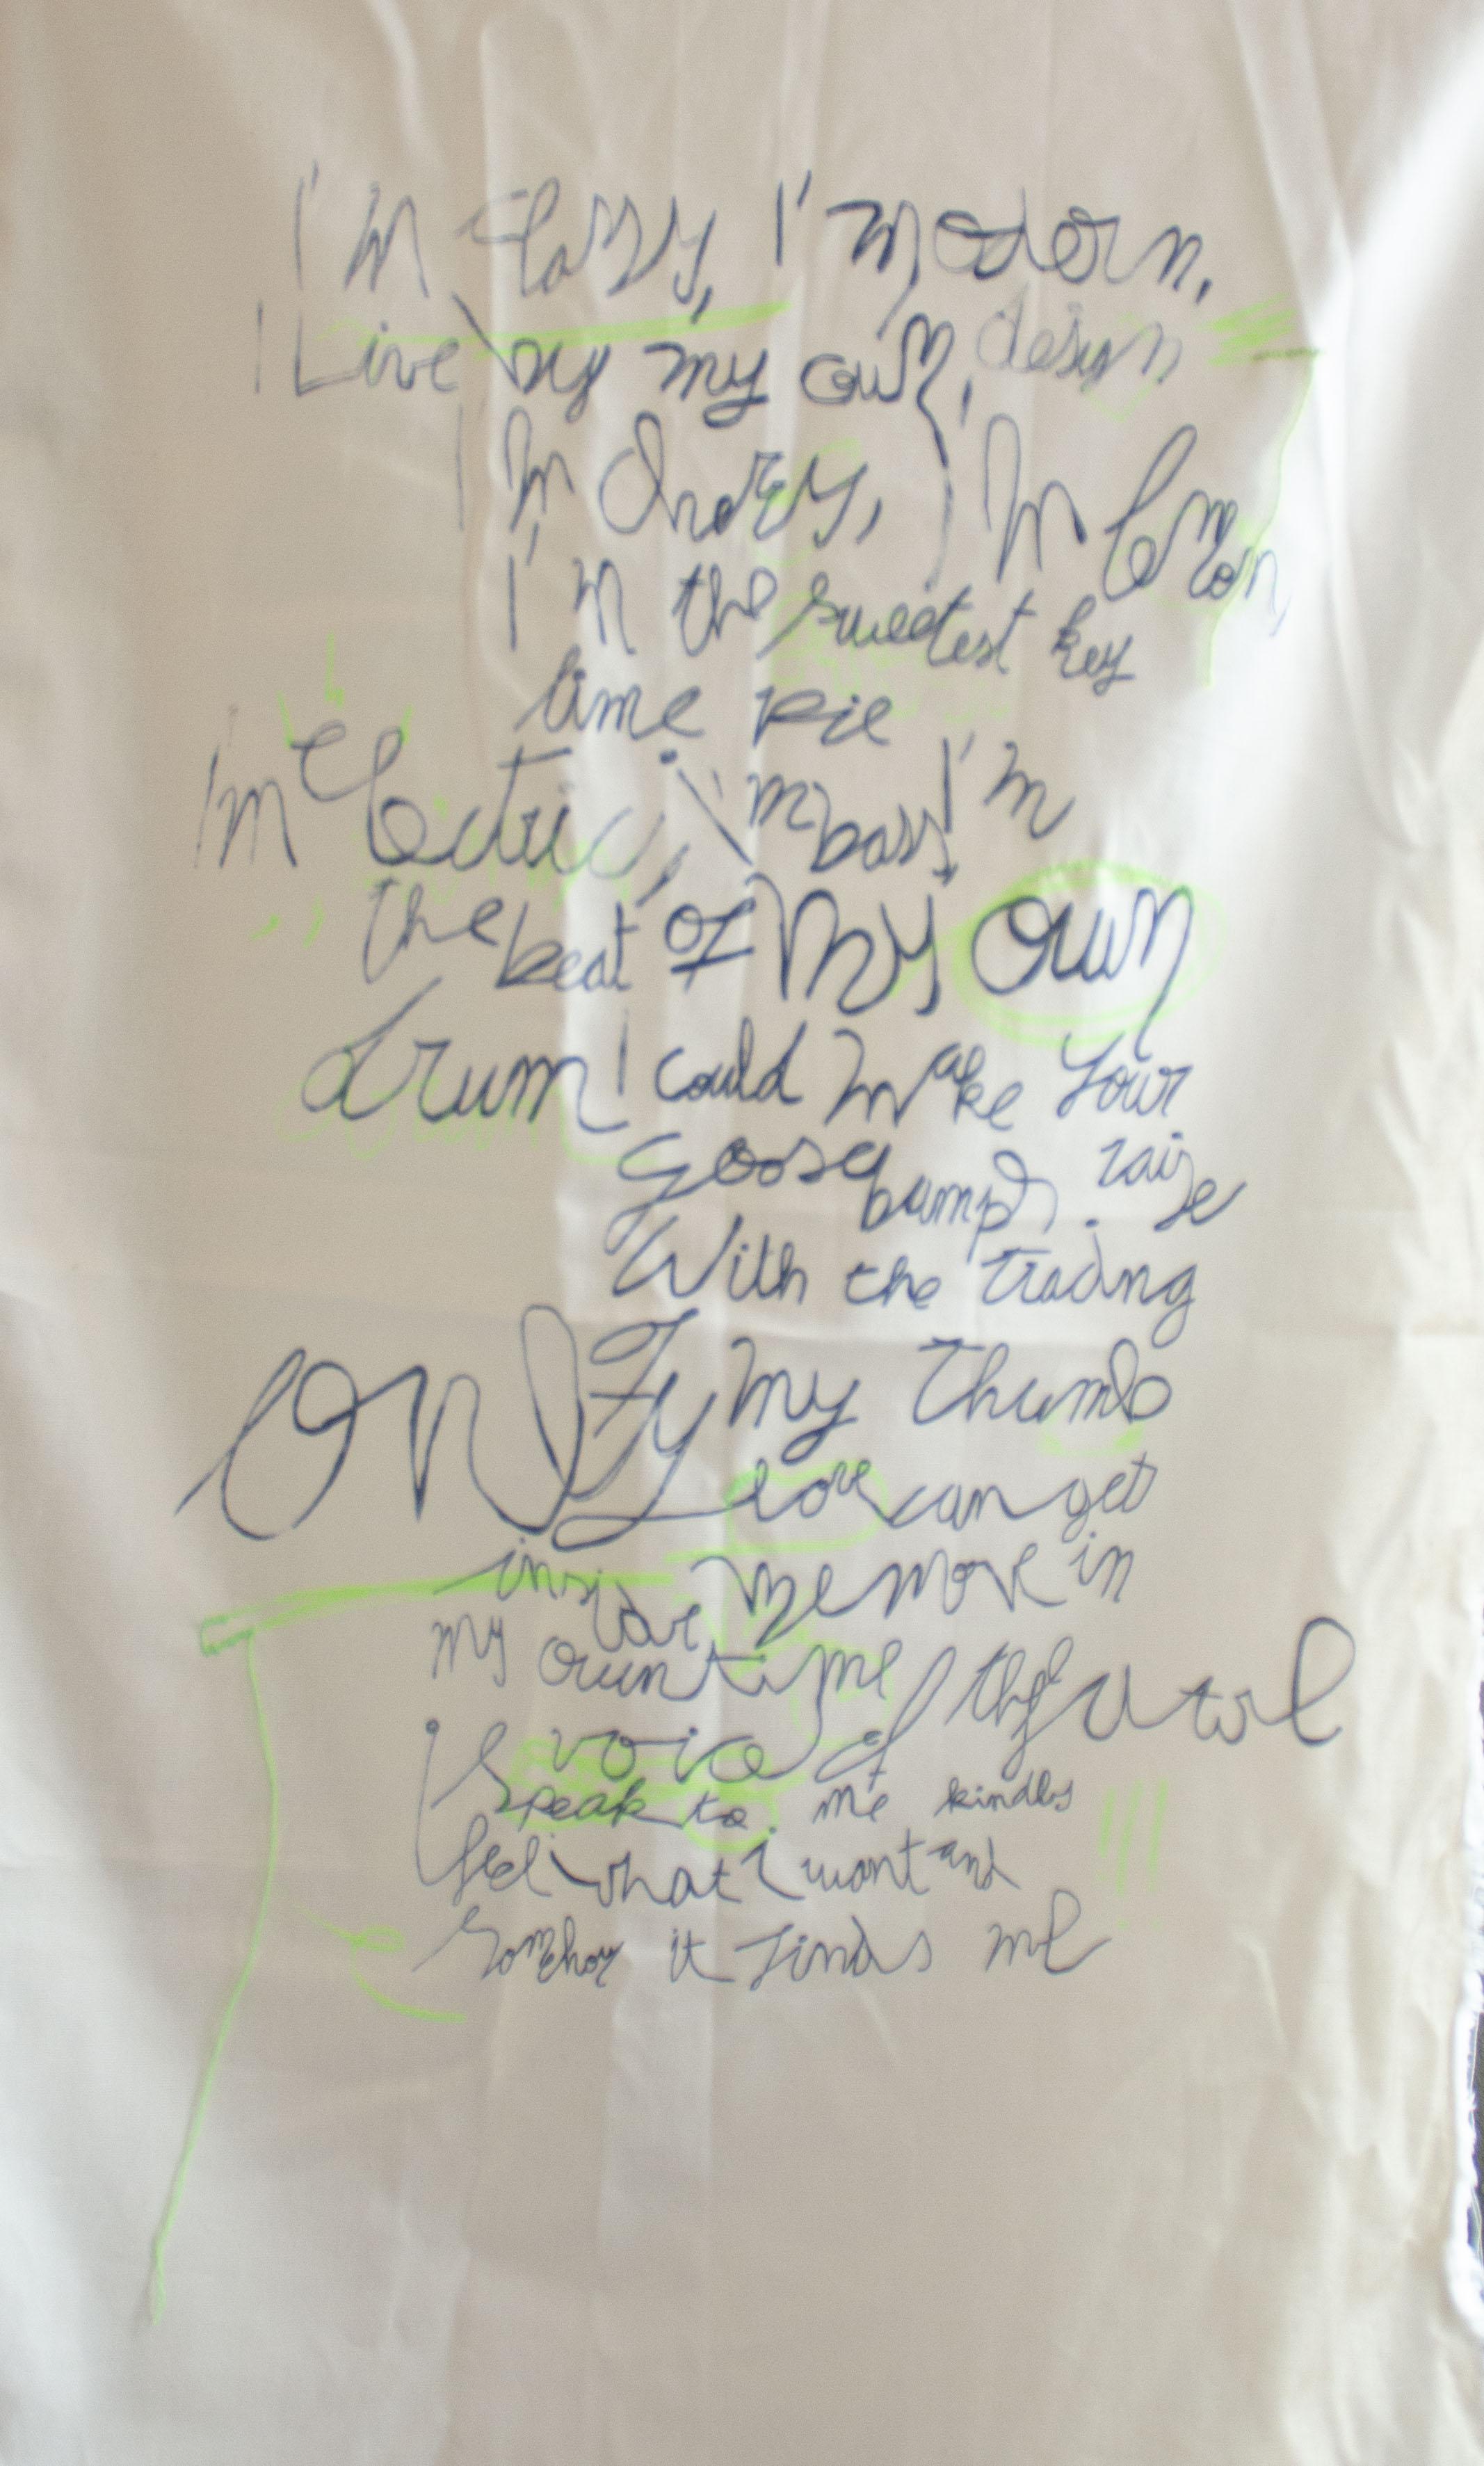 I'm classy, I'm modern,
I Live by my own design
I'm cherry, I'm lemon,
I'm the sweetest key
lime pie
I'm electric, I'm bass I'm
the beat of My own
drum I could make your
goosebumps raise
With the tracing
Of my thumb
ONly love can get
inside me move in
my own time
voice of the future
Speak to me kindly
feel what I want and
Somehow it finds me